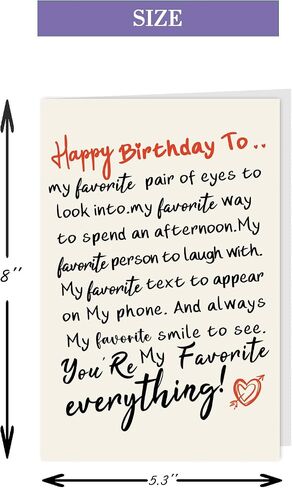 SIZE
Happy Birthday To..
my favorite pair of eyes to
look into.my favorite way
to spend an afternoon.My
favorite person to laugh with.
My favorite text to appear
on My phone. And always
My favorite smile to see.
You'Re My Favorite
everything!
8''
5.3''